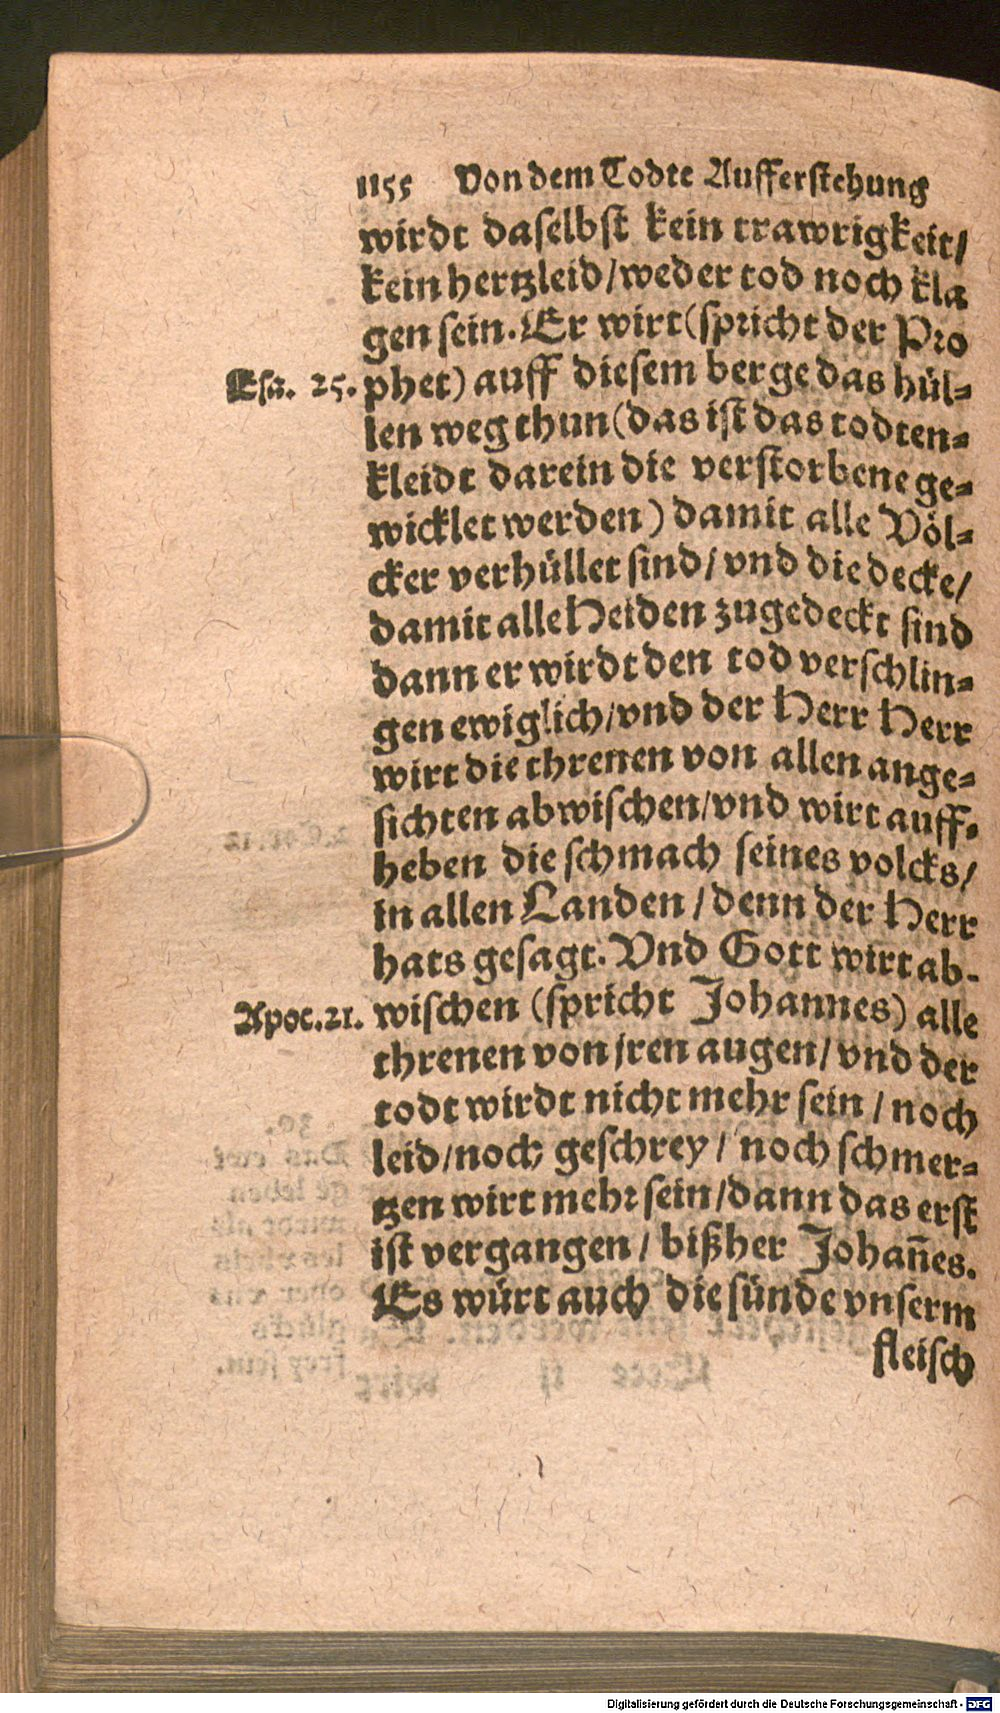 1155 Von dem Todte Aufferstehung
wirdt daselbst kein trawrigkeit/
kein hertzleid/weder tod noch kla
gen sein. Er wirt(spricht der Pro
Esa. 25. phet) auff diesem berge das hül-
len weg thun(das ist das todten-
kleidt darein die verstorbene ge-
wicklet werden) damit alle Völ-
cker verhüllet sind/ vnd die decke/
damit alle Heiden zugedeckt sind
dann er wirdt den tod verschlin-
gen ewiglich/vnd der Herr Herr
wirt die threnen von allen ange-
sichten abwischen/vnd wirt auff-
heben die schmach seines volcks/
in allen Landen / denn der Herr
hats gesagt. Vnd Gott wirt ab-
Apoc.21. wischen (spricht Johannes) alle
threnen von jren augen/ vnd der
todt wirdt nicht mehr sein / noch
leid/noch geschrey / noch schmer-
tzen wirt mehr sein/dann das erst
ist vergangen / bißher Johan̄es.
Es würt auch die sünde vnserm
fleisch
Digitalisierung gefördert durch die Deutsche Forschungsgemeinschaft - DFG